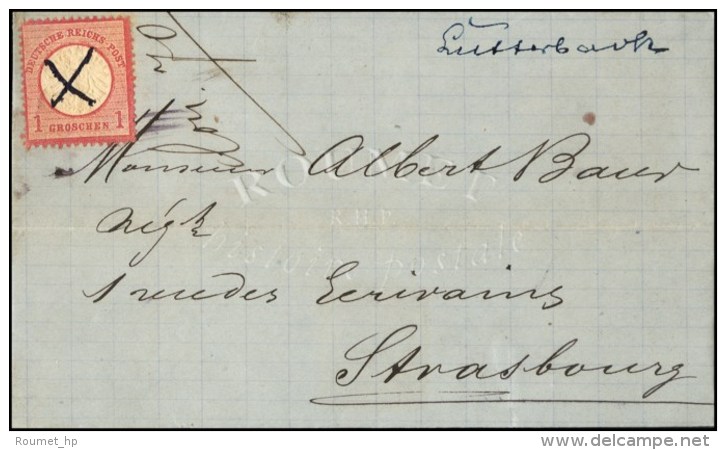 Lutterbach
DEUTSCHE REICHS-POST
1 GROSCHEN 1
Monsieur Albert Baur
négt
1 rue des Ecrivains
Strasbourg
ROUMET
histoire postale
Roumet_hp
©delcampe.net